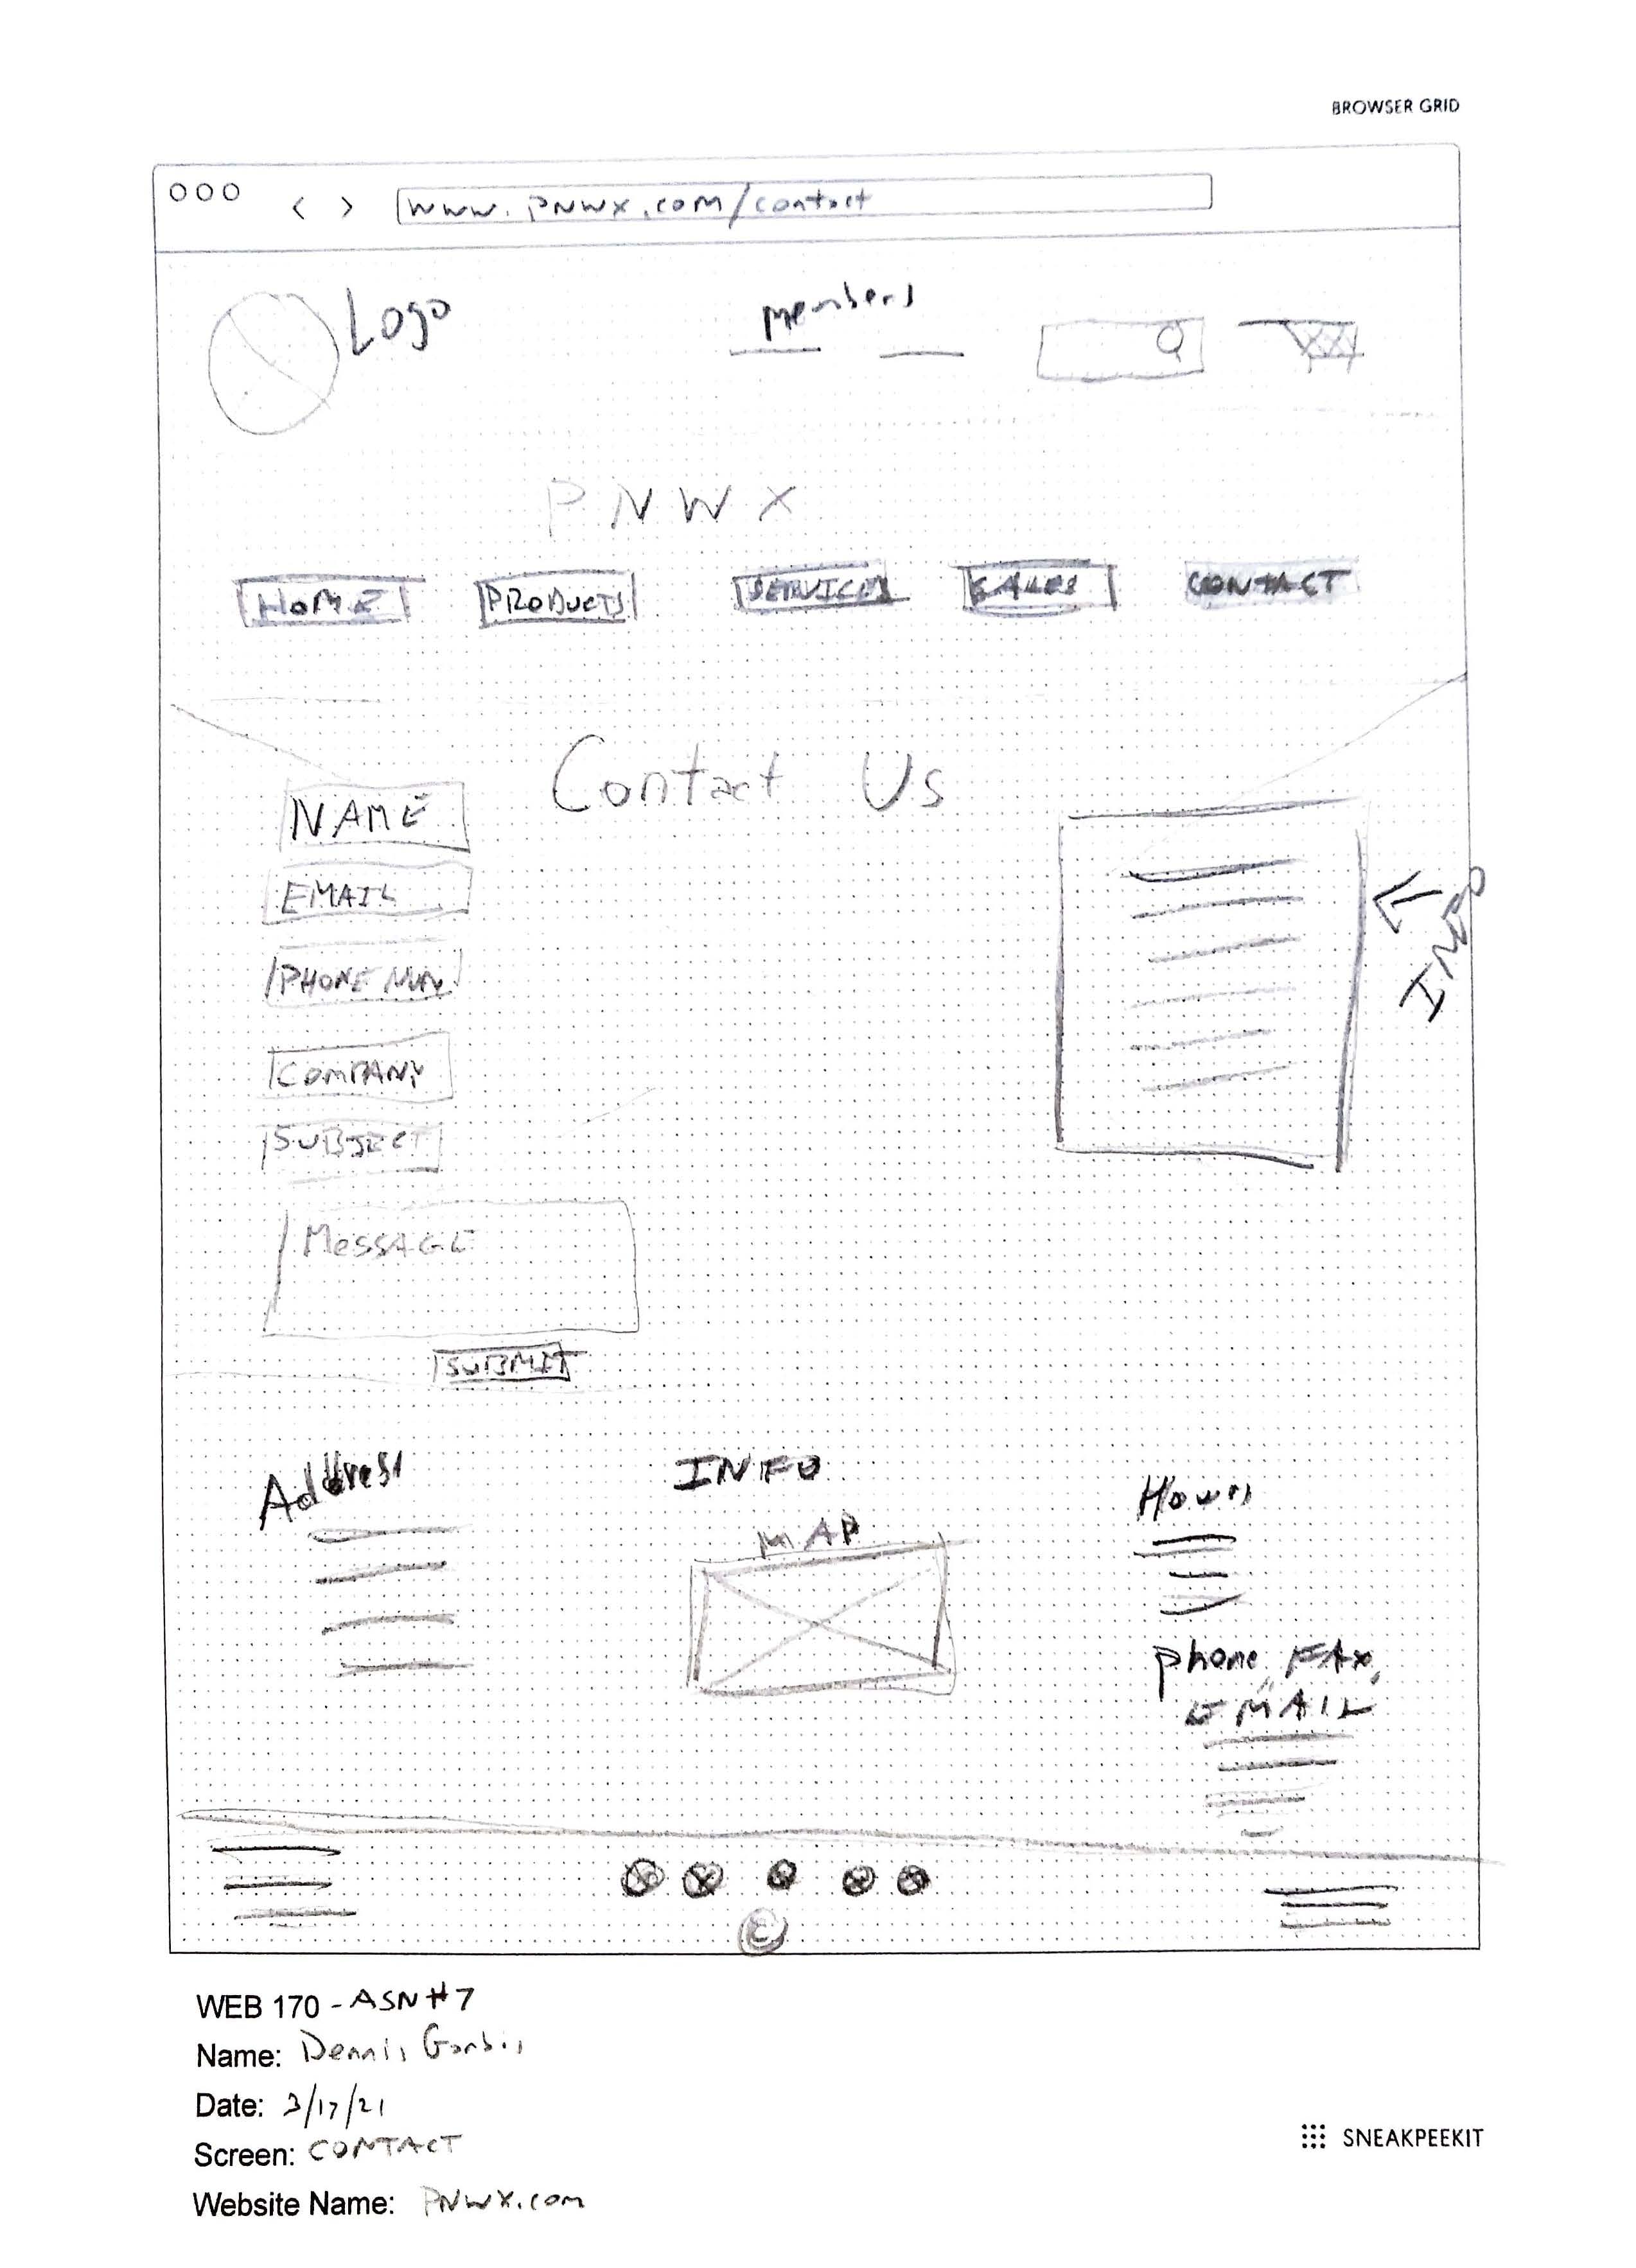 BROWSER GRID
www.pnwx.com/contact
Logo
members
PNWX
HOME PRODUCTS SERVICES SALES CONTACT
Contact Us
NAME
EMAIL
INFO
PHONE NUM
COMPANY
SUBJECT
MESSAGE
SUBMIT
Address INFO Hours
MAP
phone, FAX,
EMAIL
©
WEB 170 - ASN #7
Name: Dennis
Date: 3/17/21
Screen: CONTACT
SNEAKPEEKIT
Website Name: PNWX.com